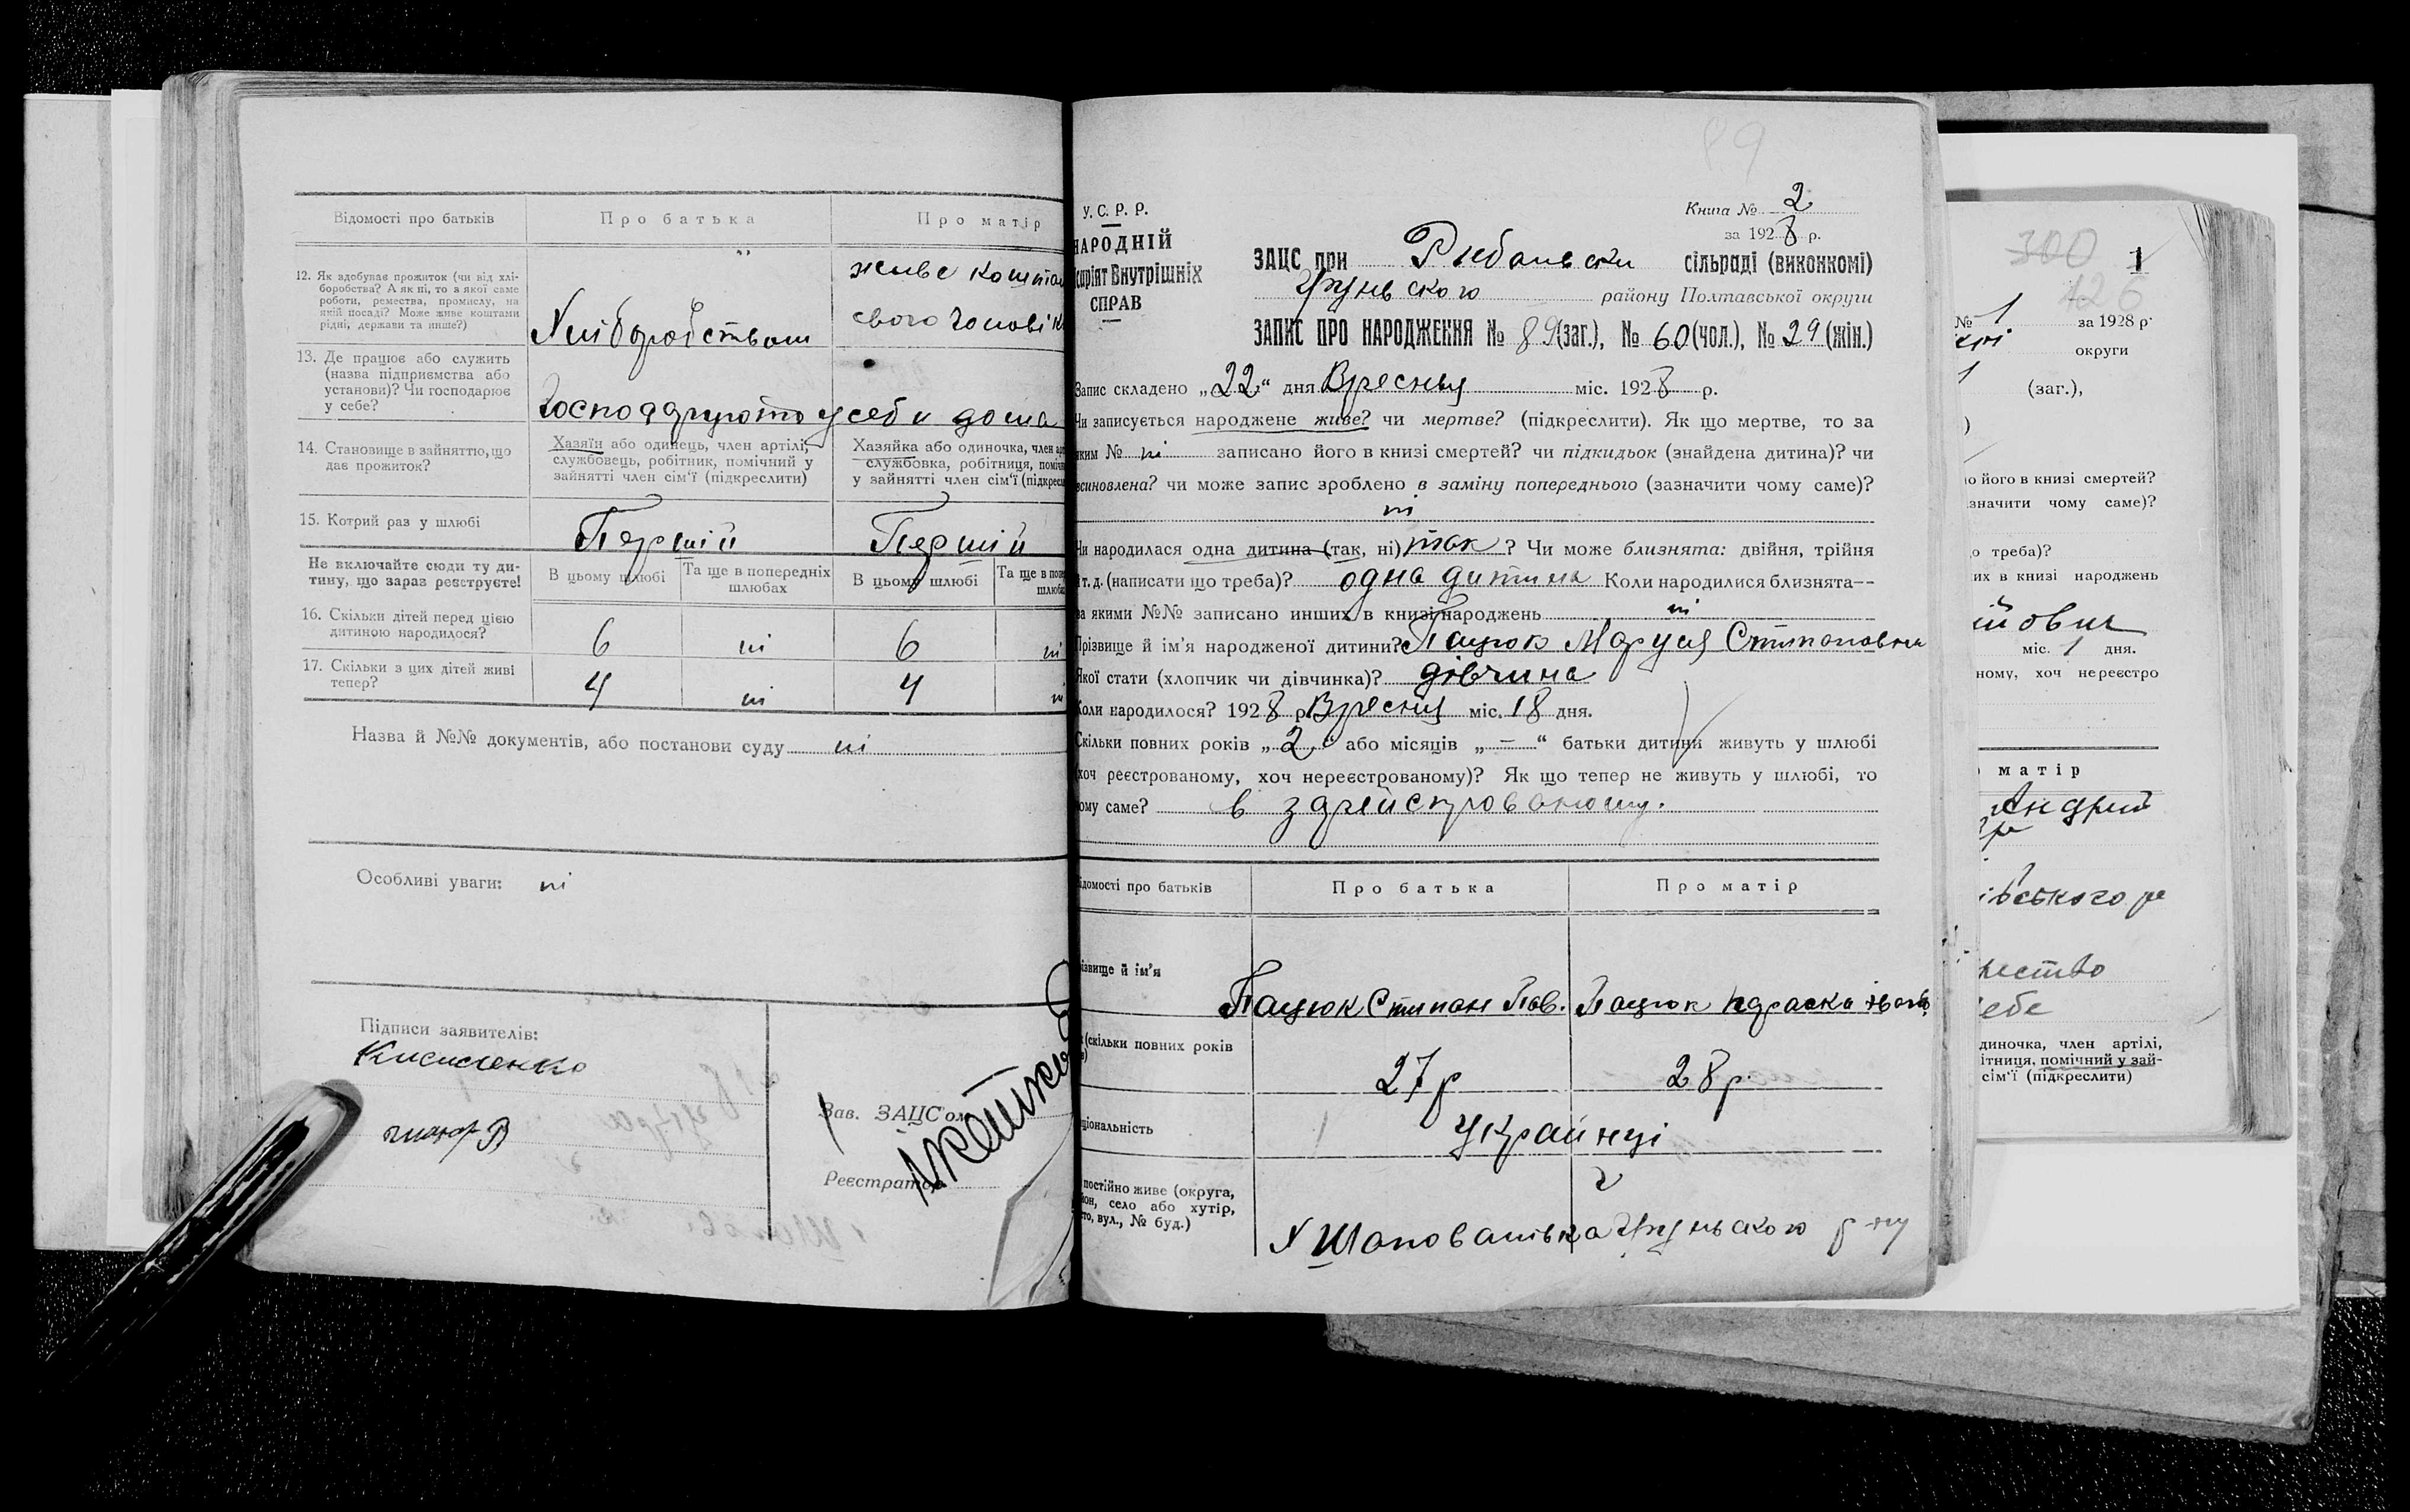 Відомості про батьків
Про батька
Про матір
12. Як здобуває прожиток (чи від хлі-
боробства? А як ні, то з якої саме
роботи, ремества, промислу, на
якій посаді? Може живе коштами
рідні, держави та инше?)
Хліборобством
живе коштом
свого чоловік
13. Де працює або служить
(назва підприємства або
установи)? Чи господарює
у себе?
14. Становище в зайняттю, що
дає прожиток?
Хазяїн або одинець, член артілі,
службовець, робітник, помічний у
зайнятті член сім'ї (підкреслити)
Хазяйка або одиночка, член арт
службовка, робітниця, поміч
у зайнятті член сім'ї (підкресл
15. Котрий раз у шлюбі
Першій
Першій
Не включайте сюди ту ди-
тину, що зараз реєструєте!
В цьому шлюбі
Та ще в попередніх
шлюбах
В цьому шлюбі
Та ще в попе
шлюба
16. Скільки дітей перед цією
дитиною народилося?
6
ні
6
ні
17. Скільки з цих дітей живі
тепер?
4
ні
4
ні
Назва й №№ документів, або постанови суду ні
Особливі уваги: ні
Підписи заявителів:
Зав. ЗАЦС'ом
Реєстратор
89
У. С. Р. Р.
НАРОДНІЙ
саріят Внутрішніх
СПРАВ
Книга № 2
за 1928 р.
ЗАЦС при сільраді (виконкомі)
Груньского району Полтавської округи
ЗАПИС ПРО НАРОДЖЕННЯ № 89 (заг.), № 60 (чол.), № 29 (жін.)
Запис складено „22" дня Вресня міс. 1928 р.
Чи записується народжене живе? чи мертве? (підкреслити). Як що мертве, то за
яким № ні записано його в книзі смертей? чи підкидьок (знайдена дитина)? чи
всиновлена? чи може запис зроблено в заміну попереднього (зазначити чому саме)?
ні
Чи народилася одна дитина (так, ні) так? Чи може близнята: двійня, трійня
і т. д. (написати що треба)? одна дитина Коли народилися близнята—
за якими №№ записано инших в книзі народжень ні
Прізвище й ім'я народженої дитини? Пацюк Маруся Стипановна
Якої стати (хлопчик чи дівчинка)? дівчина
Коли народилося? 1928 р. Вресня міс. 18 дня.
Скільки повних років „2" або місяців „—" батьки дитини живуть у шлюбі
(хоч реєстрованому, хоч нереєстрованому)? Як що тепер не живуть у шлюбі, то
чому саме? в
відомості про батьків
Про батька
Про матір
різвище й ім'я
Пацюк Стипан Пав.
Пацюк
(скільки повних років
27 р
28 р.
ціональність
Украйнці
постійно живе (округа,
йон, село або хутір,
сто, вул., № буд.)
х Шаповалівка Груньского р-ну
300
1
126
№ 1 за 1928 р.
округи
(заг.),
)
о його в книзі смертей?
значити чому саме)?
о треба)?
их в книзі народжень
міс. 1 дня.
ному, хоч нереєстро
матір
івського р
ество
себе
диночка, член артілі,
ітниця, помічний у зай-
сім'ї (підкреслити)